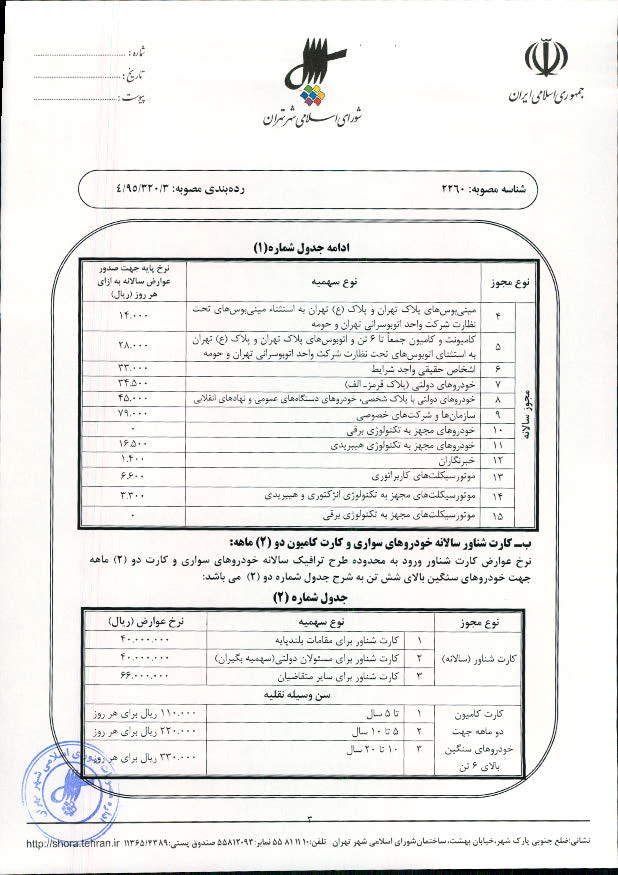 جمهوری اسلامی ایران
شورای اسلامی شهر تهران
شماره :
تاریخ :
پیوست :
شناسه مصوبه: ۲۲۶۰
رده‌بندی مصوبه: ۴/۹۵/۳۲۰/۳
ادامه جدول شماره(۱)
نوع مجوز	نوع سهمیه	نرخ پایه جهت صدور عوارض سالانه به ازای هر روز (ریال)
مجوز سالانه
۴	مینی‌بوس‌های پلاک تهران و پلاک (ع) تهران به استثناء مینی‌بوس‌های تحت	۱۴.۰۰۰
نظارت شرکت واحد اتوبوسرانی تهران و حومه
۵	کامیونت و کامیون جمعاً تا ۶ تن و اتوبوس‌های پلاک تهران و پلاک (ع) تهران	۲۸.۰۰۰
به استثنای اتوبوس‌های تحت نظارت شرکت واحد اتوبوسرانی تهران و حومه
۶	اشخاص حقیقی واجد شرایط	۳۳.۰۰۰
۷	خودروهای دولتی (پلاک قرمز-الف)	۳۴.۵۰۰
۸	خودروهای دولتی با پلاک شخصی، خودروهای دستگاه‌های عمومی و نهادهای انقلابی	۴۵.۰۰۰
۹	سازمان‌ها و شرکت‌های خصوصی	۷۹.۰۰۰
۱۰	خودروهای مجهز به تکنولوژی برقی	۰
۱۱	خودروهای مجهز به تکنولوژی هیبریدی	۱۶.۵۰۰
۱۲	خبرنگاران	۱.۴۰۰
۱۳	موتورسیکلت‌های کاربراتوری	۶.۶۰۰
۱۴	موتورسیکلت‌های مجهز به تکنولوژی انژکتوری و هیبریدی	۳.۳۰۰
۱۵	موتورسیکلت‌های مجهز به تکنولوژی برقی	۰
ب– کارت شناور سالانه خودروهای سواری و کارت کامیون دو (۲) ماهه:
نرخ عوارض کارت شناور ورود به محدوده طرح ترافیک سالانه خودروهای سواری و کارت دو (۲) ماهه
جهت خودروهای سنگین بالای شش تن به شرح جدول شماره دو (۲) می باشد:
جدول شماره (۲)
نوع مجوز	نوع سهمیه	نرخ عوارض (ریال)
کارت شناور (سالانه)
۱	کارت شناور برای مقامات بلندپایه	۴۰.۰۰۰.۰۰۰
۲	کارت شناور برای مسئولان دولتی(سهمیه بگیران)	۴۰.۰۰۰.۰۰۰
۳	کارت شناور برای سایر متقاضیان	۶۶.۰۰۰.۰۰۰
سن وسیله نقلیه
کارت کامیون
دو ماهه جهت
خودروهای سنگین
بالای ۶ تن
۱	تا ۵ سال	۱۱۰.۰۰۰ ریال برای هر روز
۲	۵ تا ۱۰ سال	۲۲۰.۰۰۰ ریال برای هر روز
۳	۱۰ تا ۲۰ سال	۳۳۰.۰۰۰ ریال برای هر روز
۳
نشانی:ضلع جنوبی پارک شهر،خیابان بهشت، ساختمان‌شورای اسلامی شهر تهران تلفن:۱۰ ۱۱ ۸۱ ۵۵ نمابر:۵۵۸۱۲۰۹۳ صندوق پستی:۱۱۳۶۵/۴۳۸۹ http://shora.tehran.ir